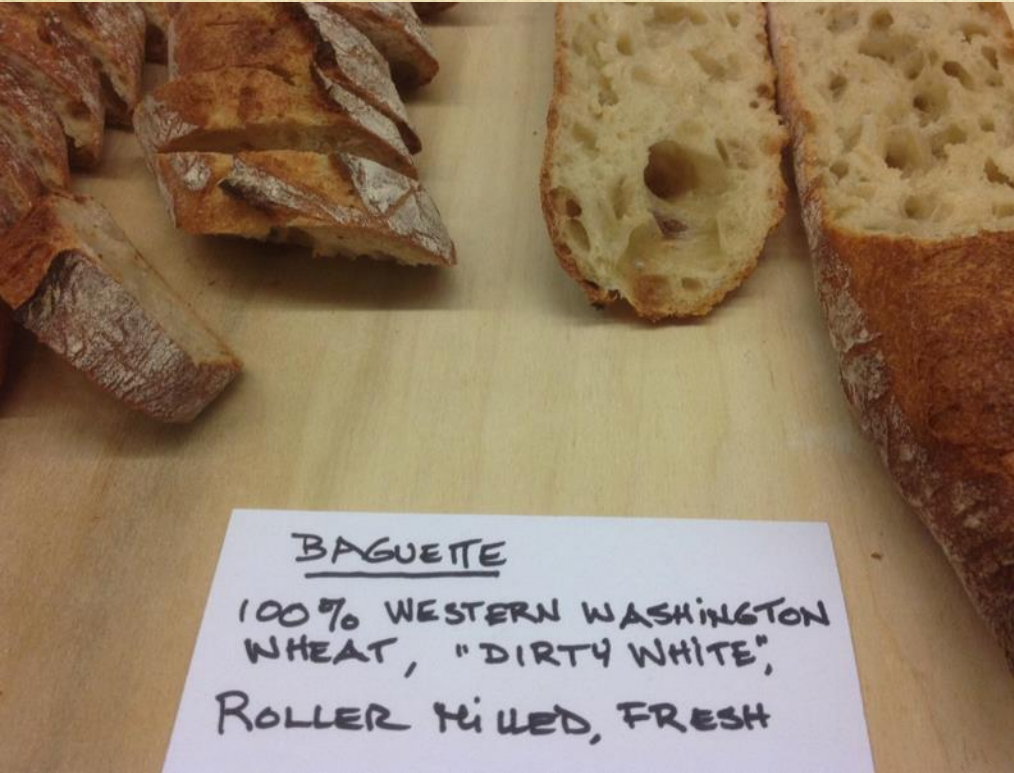 BAGUETTE
100% WESTERN WASHINGTON
WHEAT, "DIRTY WHITE",
ROLLER MILLED, FRESH